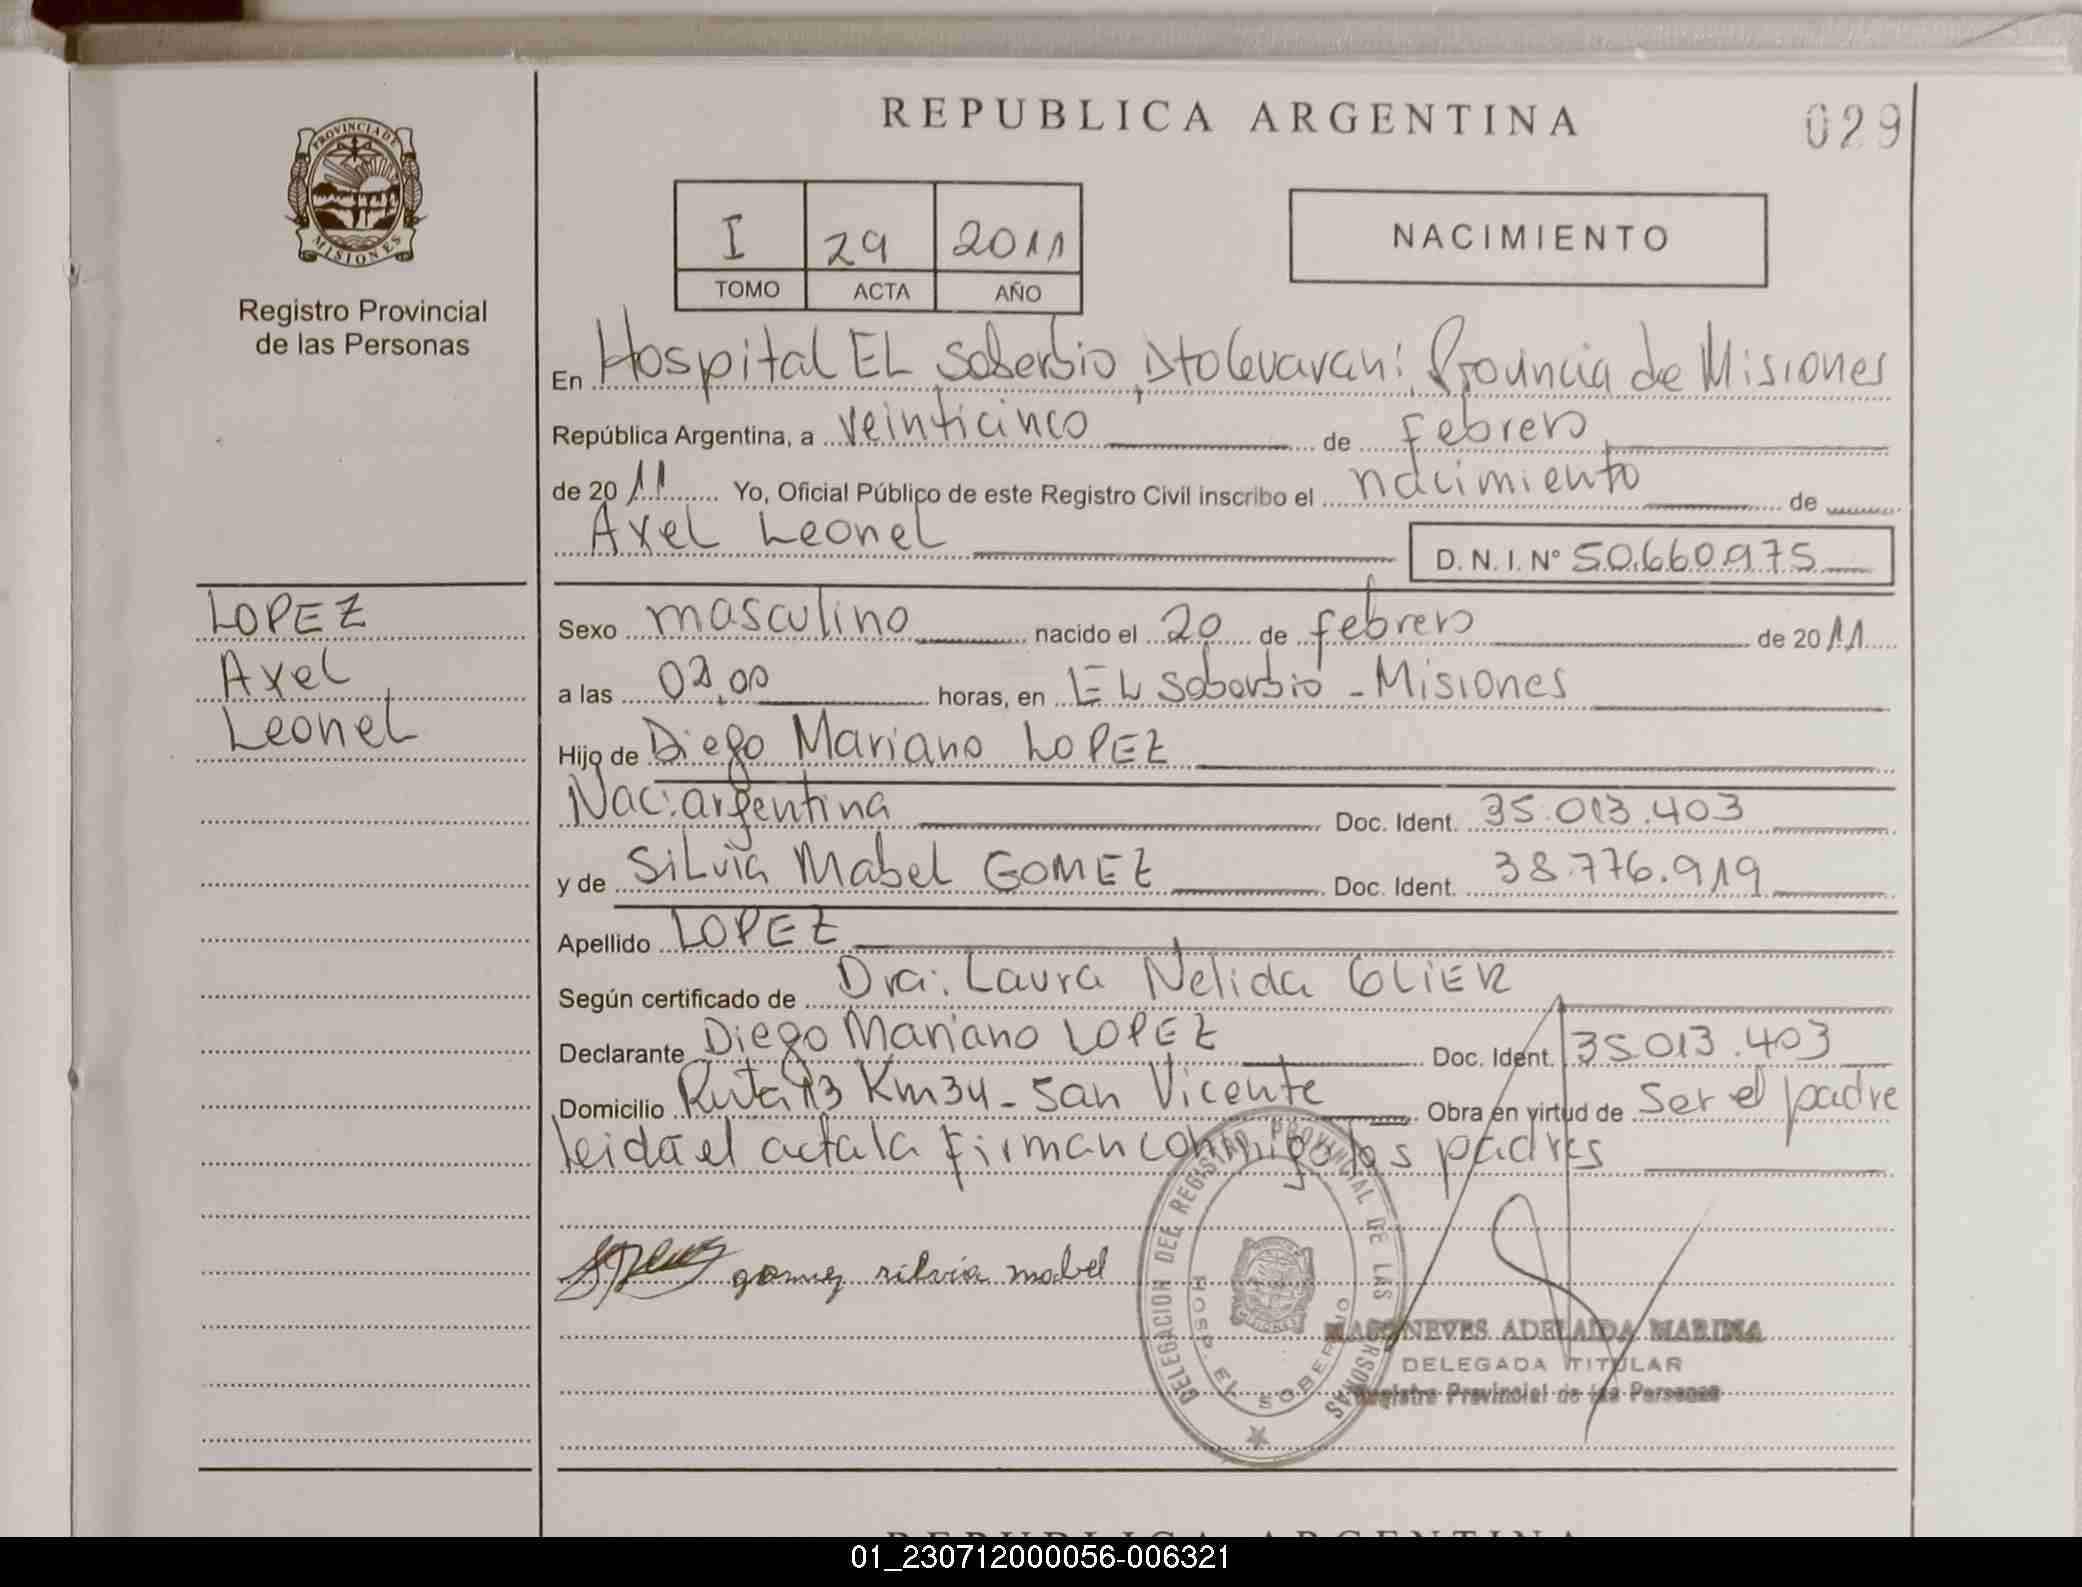 REPUBLICA ARGENTINA
029
PROVINCIA DE
MISIONES
Registro Provincial
de las Personas
I 29 2011
TOMO ACTA AÑO
NACIMIENTO
En Hospital EL Soberbio, Dto Guarani, Provincia de Misiones
República Argentina, a veinticinco de febrero
de 2011 Yo, Oficial Público de este Registro Civil inscribo el nacimiento de
Axel Leonel
D. N. I. Nº 50.660.975
LOPEZ
Axel
Leonel
Sexo masculino nacido el 20 de febrero de 2011
a las horas, en EL Soberbio - Misiones
Hijo de Diego Mariano LOPEZ
Nac: argentina Doc. Ident. 35.013.403
y de Silvia Mabel GOMEZ Doc. Ident. 38.776.919
Apellido LOPEZ
Según certificado de Dra. Laura Nelida GLIER
Declarante Diego Mariano LOPEZ Doc. Ident. 35.013.403
Domicilio Ruta 13 Km 34 - San Vicente Obra en virtud de ser el padre
leida el acta la firman conmigo los padres
gomez silvia mabel
DELEGACION DEL REGISTRO PROVINCIAL DE LAS PERSONAS
HOSP. EL SOBERBIO
NEVES ADELAIDA MARINA
DELEGADA TITULAR
Registro Provincial de las Personas
REPUBLICA ARGENTINA
01_230712000056-006321